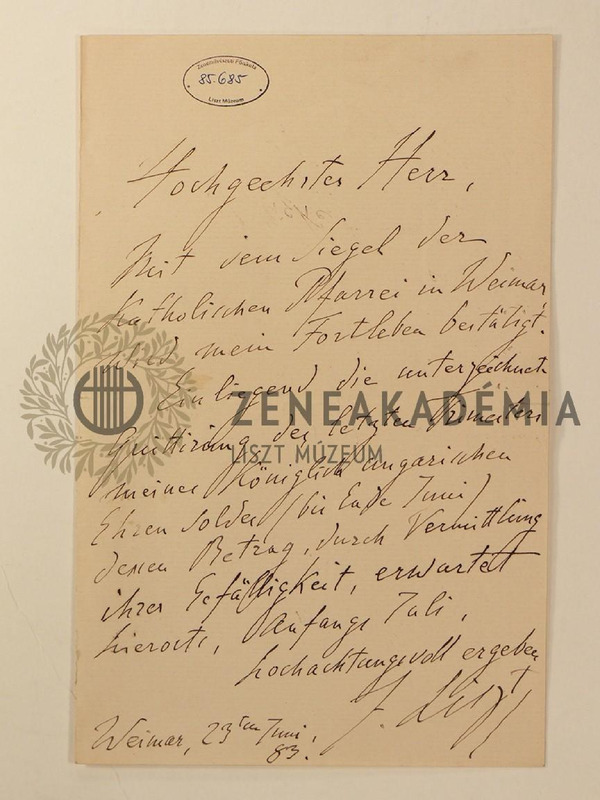 Zeneművészeti Főiskola
85.685
Liszt Múzeum
Hochgeehrter Herr,
Mit dem Siegel der
Katholischen Pfarrei in Weimar,
wird mein Fortleben bestätigt.
Einliegend die unterzeichnete
Quittirung des letzten Trimesters
meines Königlich ungarischen
Ehren soldes (bis Ende Juni)
dessen Betrag, durch Vermittlung
ihrer Gefälligkeit, erwartet
hierorts, Anfangs Juli,
hochachtungsvoll ergeben
F. Liszt
Weimar, 23ten Juni,
83.
ZENEAKADÉMIA
LISZT MÚZEUM